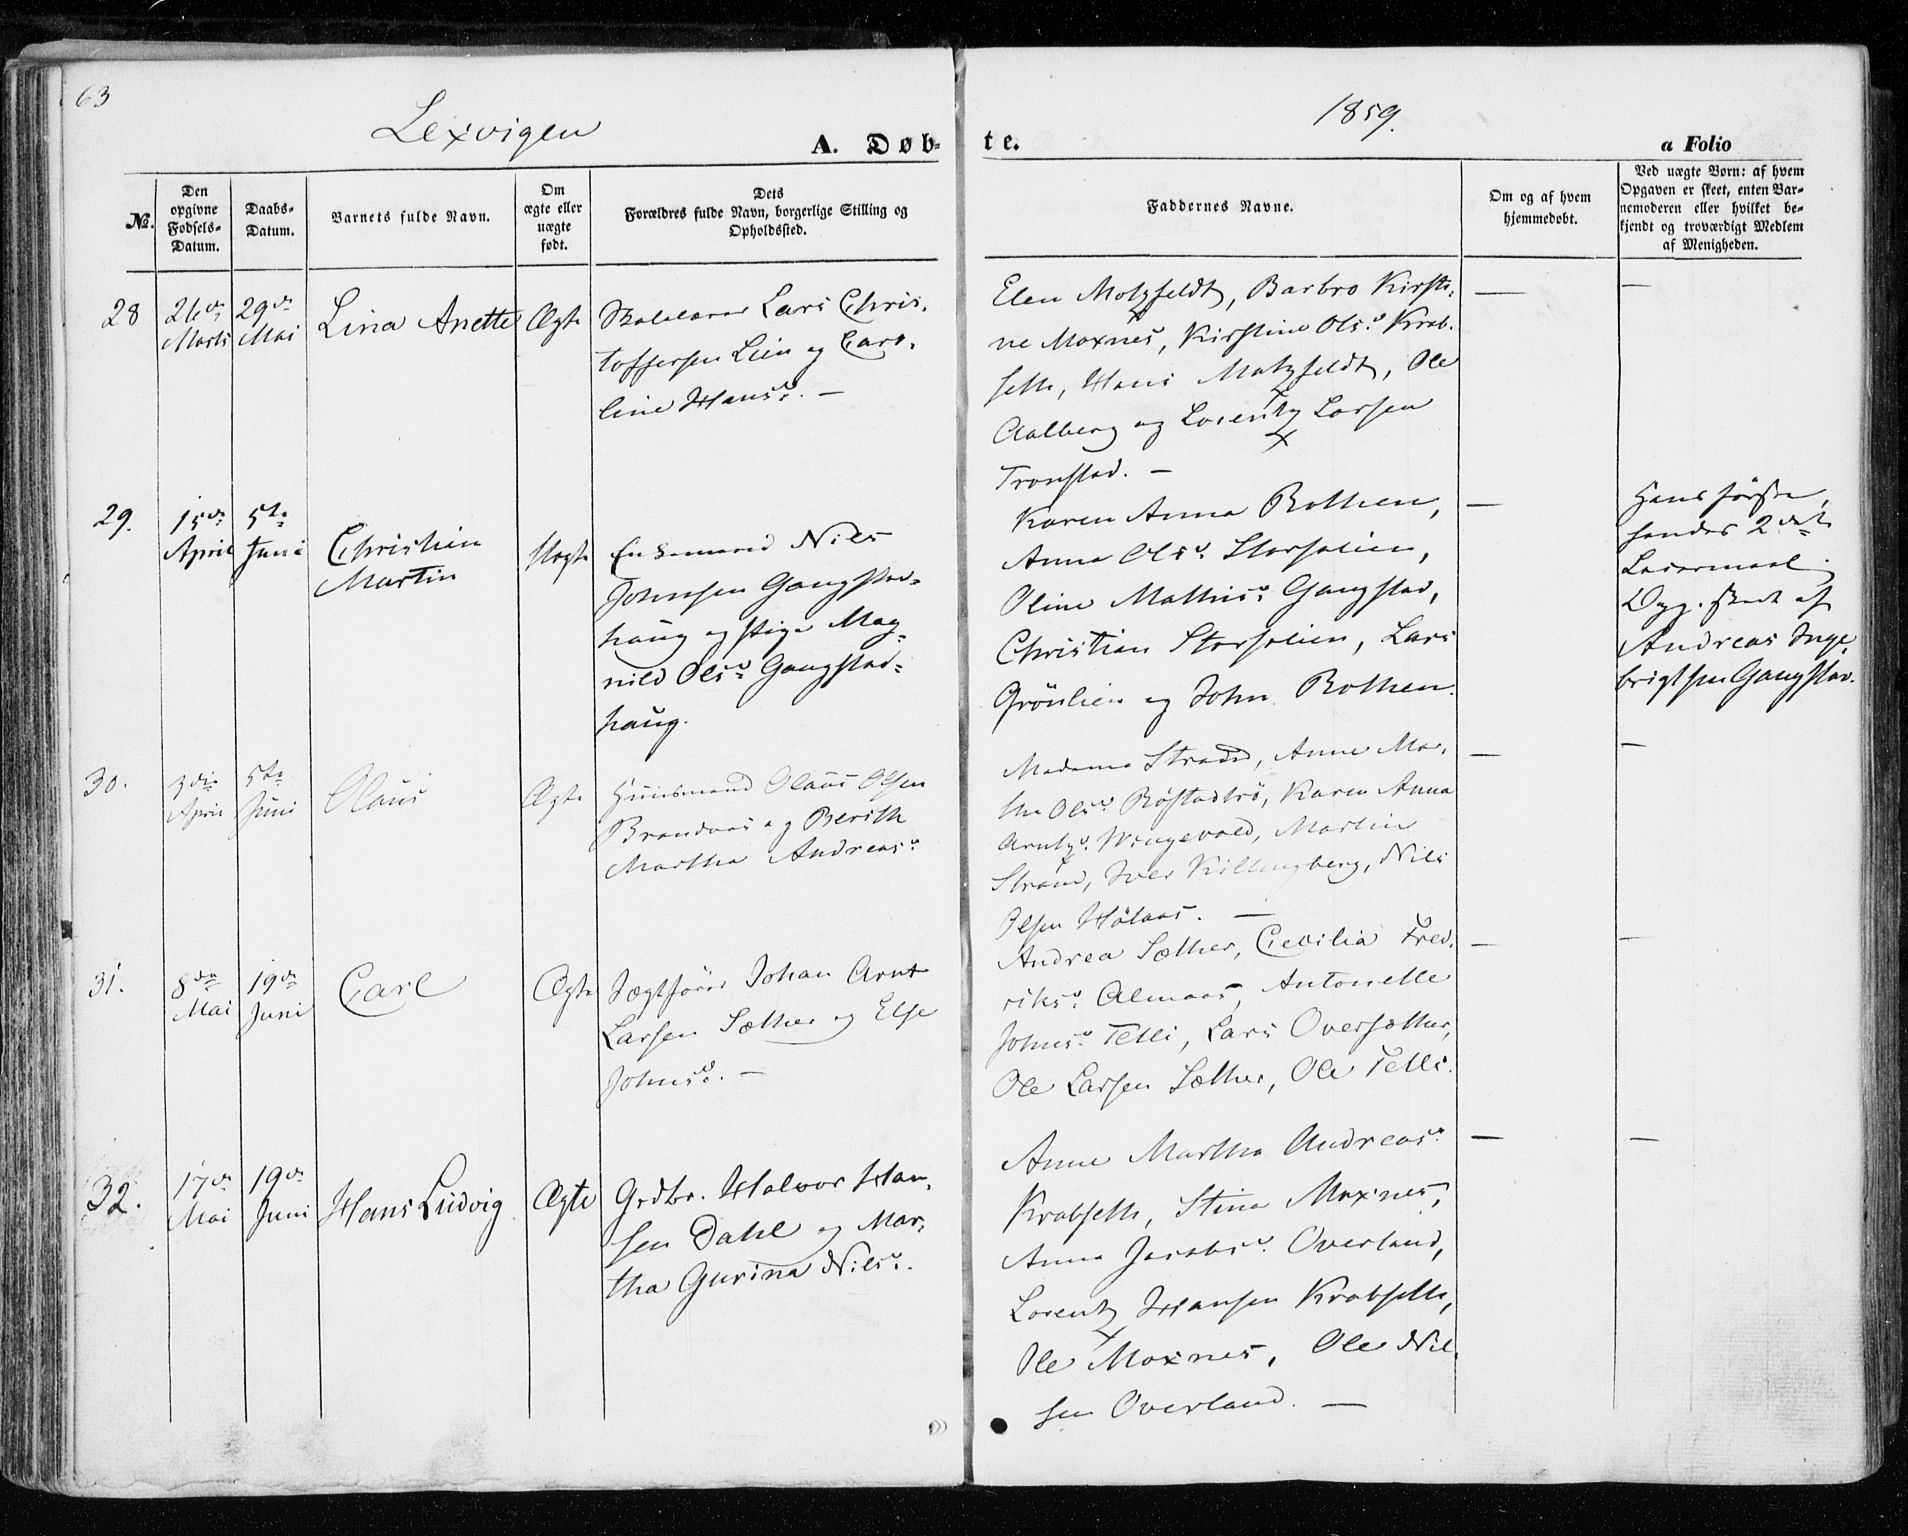 63
Lexvigen
1859.
A. Døb-
te.
a Folio
No.
Den opgivne Fødsels-Datum.
Daabs-Datum.
Barnets fulde Navn.
Om ægte eller uægte født.
Dets Forældres fulde Navn, borgerlige Stilling og Opholdssted.
Faddernes Navne.
Om og af hvem hjemmedøbt.
Ved uægte Børn: af hvem Opgaven er skeet, enten Barnemoderen eller hvilket bekjendt og troværdigt Medlem af Menigheden.
28
26de Marts
29de Mai
Lina Anette
Ægte
Skolelærer Lars Chris-
toffersen Lien og Caro-
line Hansd. —
Elen Motzfeldt, Barbro Kirsti-
ne Moxnes, Kirstine Olsd. Krob-
selle, Hans Motzfeldt, Ole
Aalberg og Lorentz Larsen
Tronstad. —
—
—
29.
15de April
5te Juni
Christian
Martin
Uægte
Enkemand Nils
Johnsen Gangstad-
haug og Pige Mag-
nild Olsd. Gangstad-
haug.
Karen Anna Rothen,
Anne Olsd. Storsolien,
Oline Mathisd. Gangstad,
Christian Storsolien, Lars
Grönlien og John Rothen.
—
Hans første,
hendes 2det
Leiermaal.
Opg. skeet af
Andreas Inge-
brigtsen Gangstad.
30.
3die April
5te Juni
Olaus
Ægte
Huusmand Olaus Olsen
Brandaas og Berith
Martha Andreasd.
Madame Strand, Anne Mar-
the Olsd. Röstadtrö, Karen Anna
Arntzd. Wingevold, Martin
Strand, Iver Killingberg, Nils
Olsen Hölaas. —
—
—
31.
8de Mai
19de Juni
Carl
Ægte
Jægtfører Johan Arnt
Larsen Sæther og Else
Johnsd. —
Andrea Sæther, Cecilia Fred-
riksd. Almaas, Antonette
Johnsd. Telli, Lars Oversæther,
Ole Larsen Sæther, Ole Telli.
—
—
32.
17de Mai
19de Juni
Hans Ludvig
Ægte
Grdbr. Halvor Han-
sen Dahl og Mar-
tha Gurina Nilsd.
Anne Martha Andreasd.
Krobselle, Stina Moxnes,
Anna Jacobsd. Overland,
Lorentz Hansen Krobselle,
Ole Moxnes, Ole Niel-
sen Overland. —
—
—